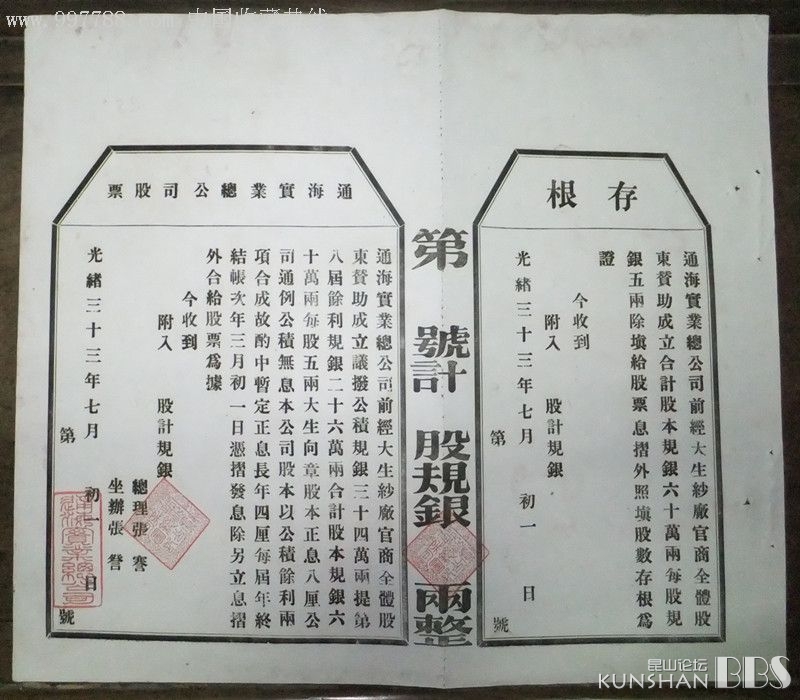 www.997788.com 中国收藏热线
存根
通海實業總公司前經大生紗廠官商全體股
東贊助成立合計股本規銀六十萬兩每股規
銀五兩除塡給股票息摺外照塡股數存根爲
證
今收到
附入 股計規銀
第 號
光緒三十三年七月 初一 日
第 號計 股規銀 兩整
通海實業總公司股票
通海實業總公司前經大生紗廠官商全體股
東贊助成立議撥公積規銀三十四萬兩提第
八屆餘利規銀二十六萬兩合計股本規銀六
十萬兩每股五兩大生向章股本正息八厘公
司通例公積無息本公司股本以公積餘利兩
項合成故酌中暫定正息長年四厘每屆年終
結帳次年三月初一日憑摺發息除另立息摺
外合給股票爲據
今收到
附入 股計規銀
總理張謇
坐辦張詧
光緒三十三年七月 初一 日
第 號
通海實業總公司
昆山论坛
KUNSHAN BBS